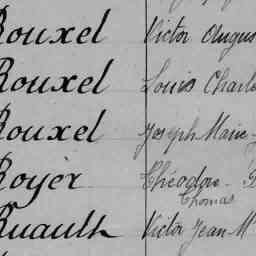 Rouxel Victor Augus
Rouxel Louis Charle
Rouxel Joseph Marie
Royer Théodore
Thomas
Ruault Victor Jean M